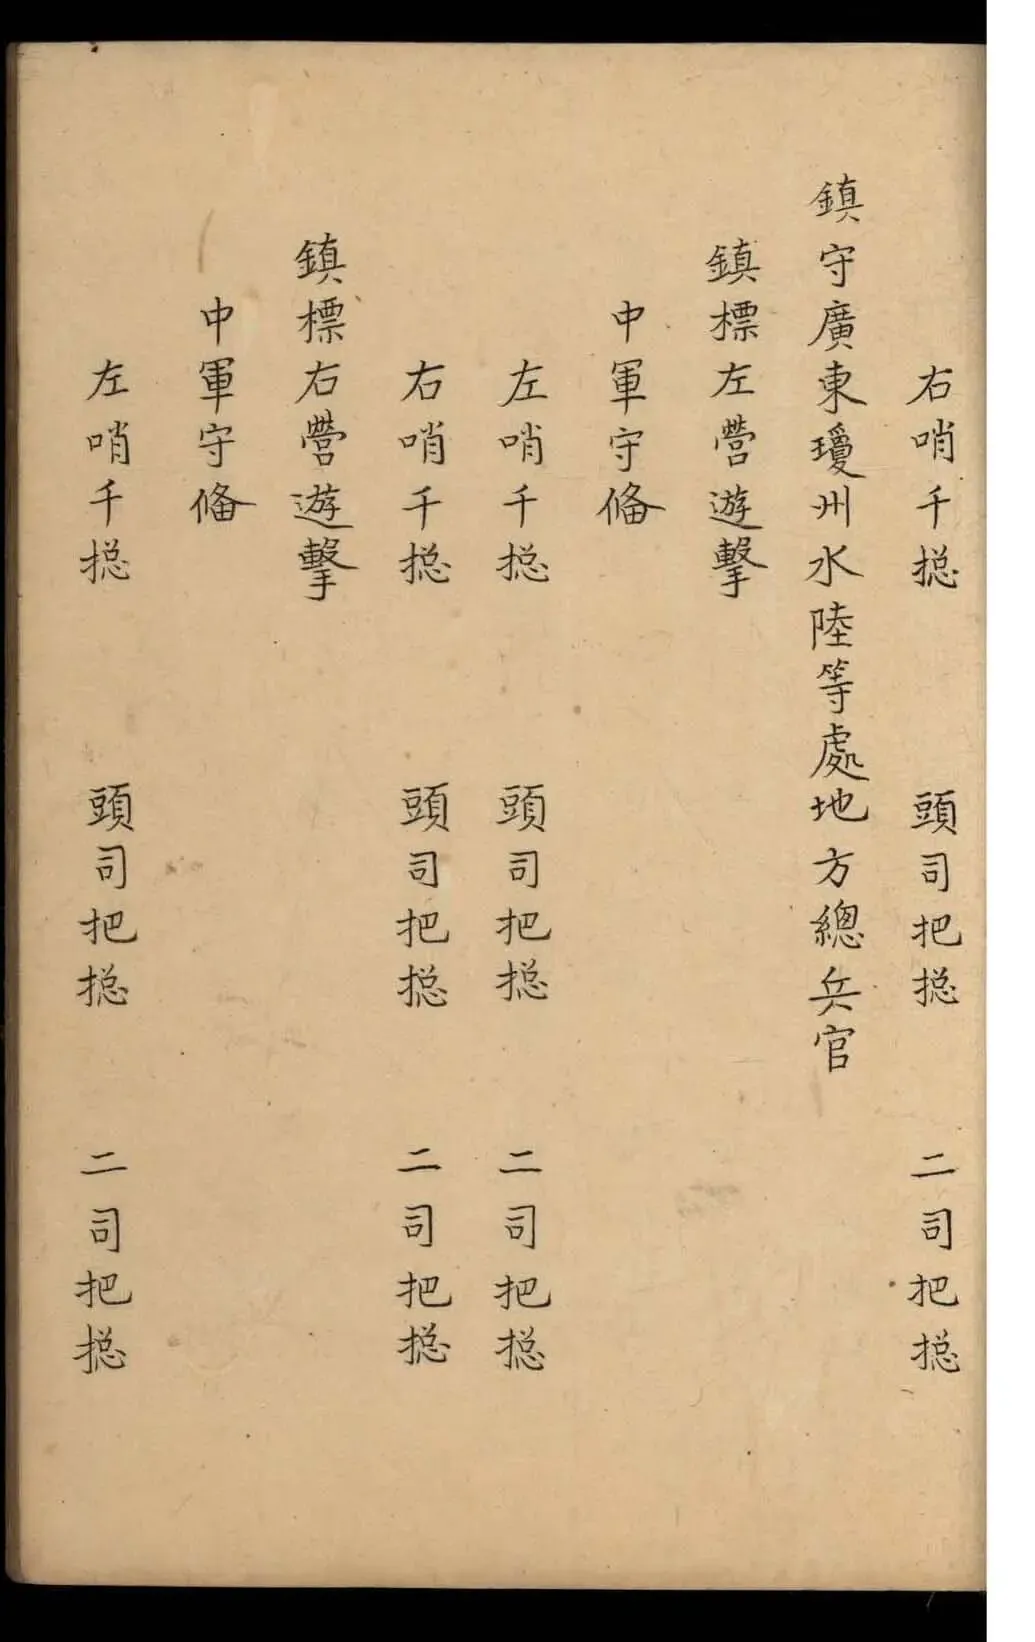 右哨千捴　頭司把捴　二司把捴
鎮守廣東瓊州水陸等處地方總兵官
鎮標左營遊擊
中軍守俻
左哨千捴　頭司把捴　二司把捴
右哨千捴　頭司把捴　二司把捴
鎮標右營遊擊
中軍守俻
左哨千捴　頭司把捴　二司把捴